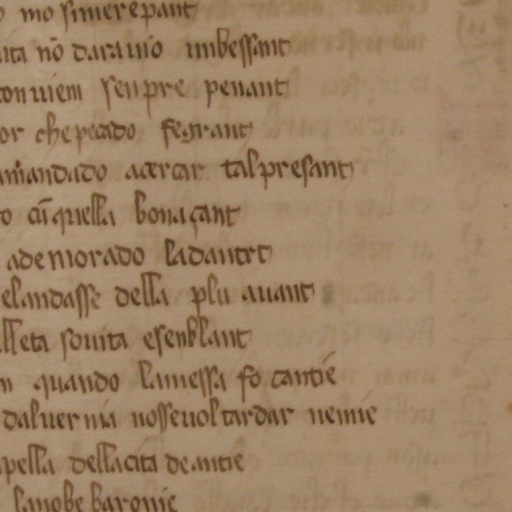 o mo si mere pant
uita nō dara uio imbessant
con uiem senpre penant
or che peccado fe grant
amandado acercar tal presant
o cū quella bona çant
ademorado la dauant
elandasse della plu auant
lleta souita e senblant
n quando la messa fo cantie
daluernia nosse uol tardar nemie
pella della cita de antie
sanobe baronie